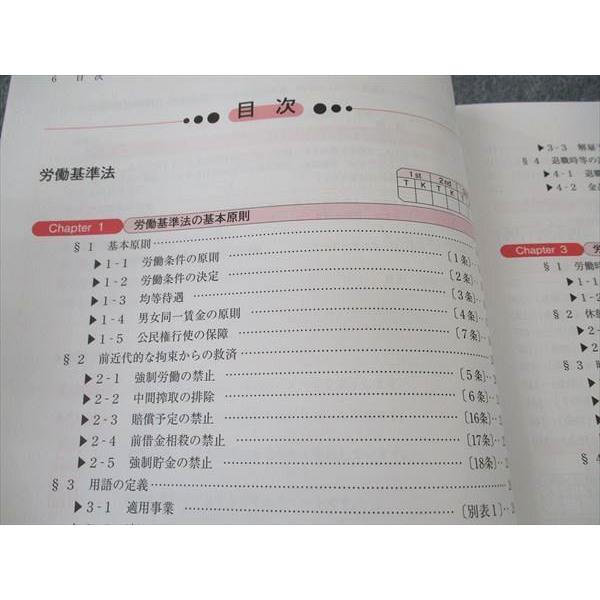 6 目 次
目 次
労働基準法
1st 2nd
T K T K
Chapter 1 労働基準法の基本原則
§1 基本原則
▶1-1 労働条件の原則 〔1条〕
▶1-2 労働条件の決定 〔2条〕
▶1-3 均等待遇 〔3条〕
▶1-4 男女同一賃金の原則 〔4条〕
▶1-5 公民権行使の保障 〔7条〕
§2 前近代的な拘束からの救済
▶2-1 強制労働の禁止 〔5条〕
▶2-2 中間搾取の排除 〔6条〕
▶2-3 賠償予定の禁止 〔16条〕
▶2-4 前借金相殺の禁止 〔17条〕
▶2-5 強制貯金の禁止 〔18条〕
§3 用語の定義
▶3-1 適用事業 〔別表1〕
▶3-3 解雇
§4 退職時等の
▶4-1 退職
▶4-2 金品
Chapter 3 労
§1 労働時
▶1-1
▶1-2
§2 休憩
▶2-
▶2-
§3
§4